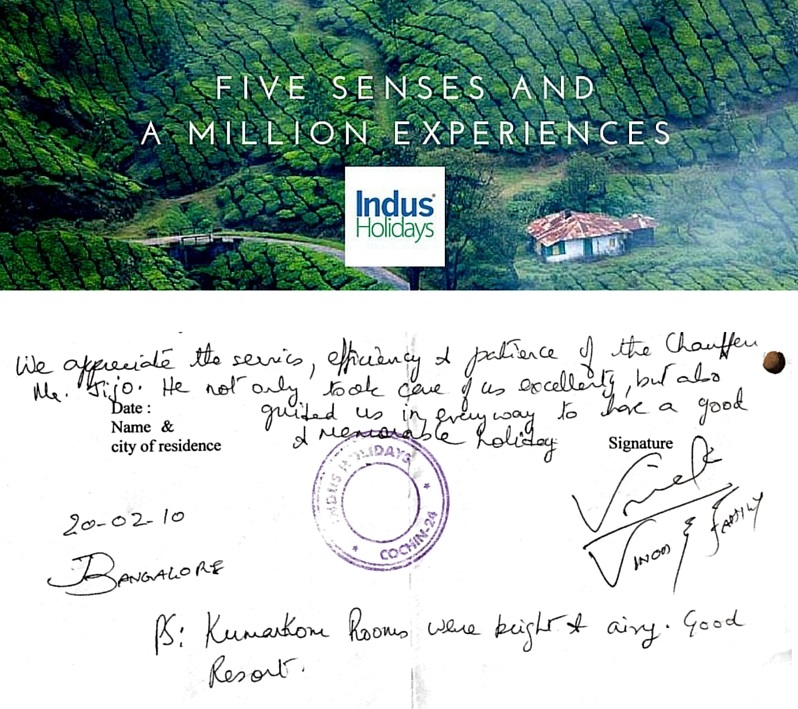 FIVE SENSES AND
A MILLION EXPERIENCES
Indus®
Holidays
We appreciate the service, efficiency & patience of the Chauffeu
Mr. Jijo. He not only took care of us excellently, but also
guided us in every way to have a good
& memorable holiday
Date :
Name &
city of residence
Signature
INDUS HOLIDAYS
COCHIN-24
20-02-10
BANGALORE
VINOD & FAMILY
PS: Kumarkom Rooms were bright & airy. Good
Resort.